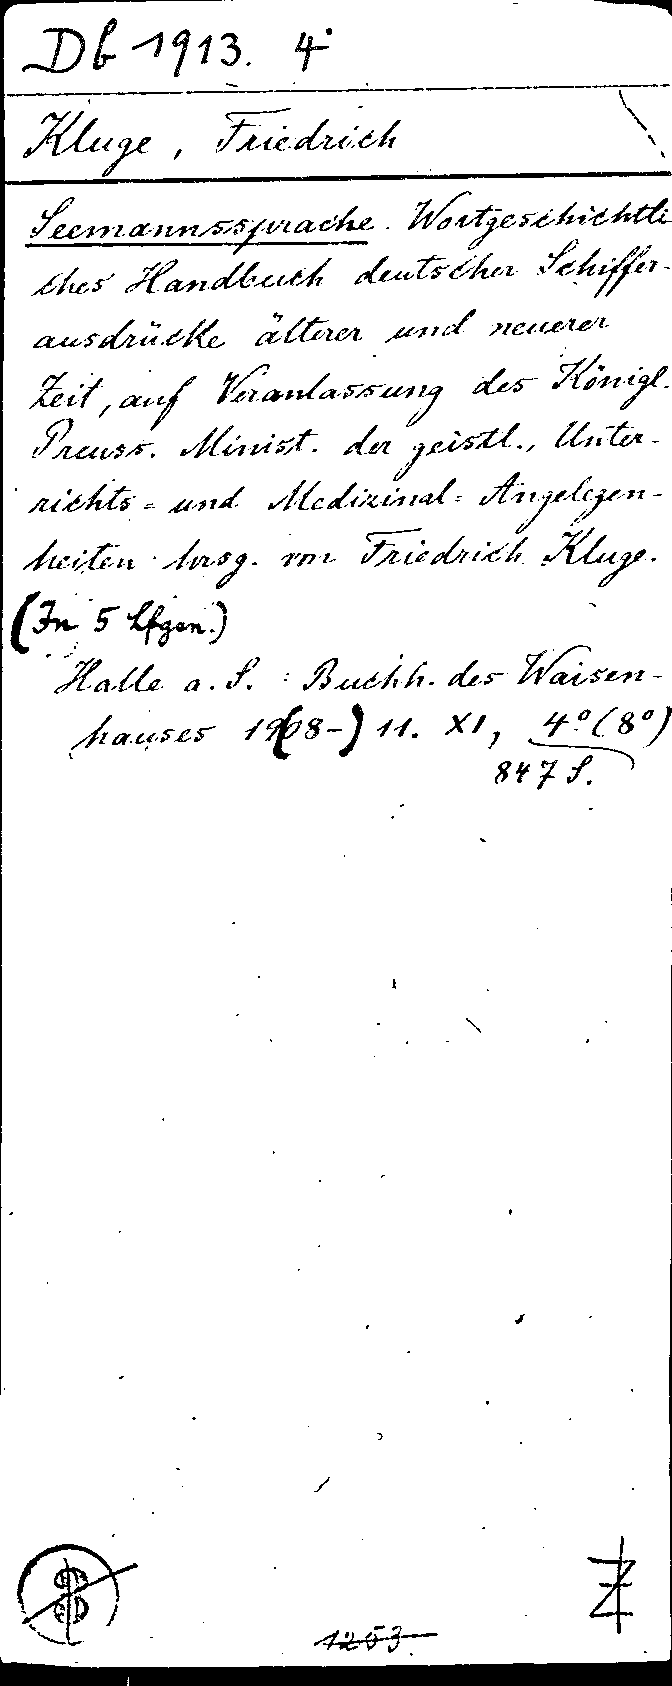 Db 1913. 4°
Kluge, Friedrich
Seemannssprache. Wortgeschichtli
ches Handbuch deutscher Schiffer-
ausdrücke älterer und neuerer
Zeit, auf Veranlassung des Königl.
Preuss. Minist. der geistl., Unter-
richts= und Medizinal= Angelegen-
heiten hrsg. von Friedrich Kluge.
(In 5 Lfgen.)
Halle a. S. : Buchh. des Waisen-
hauses 19(08-) 11. XI, 4° (8°)
847 S.
1253